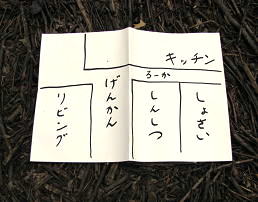 キッチン
ろーか
しょさい
しんしつ
げんかん
リビング